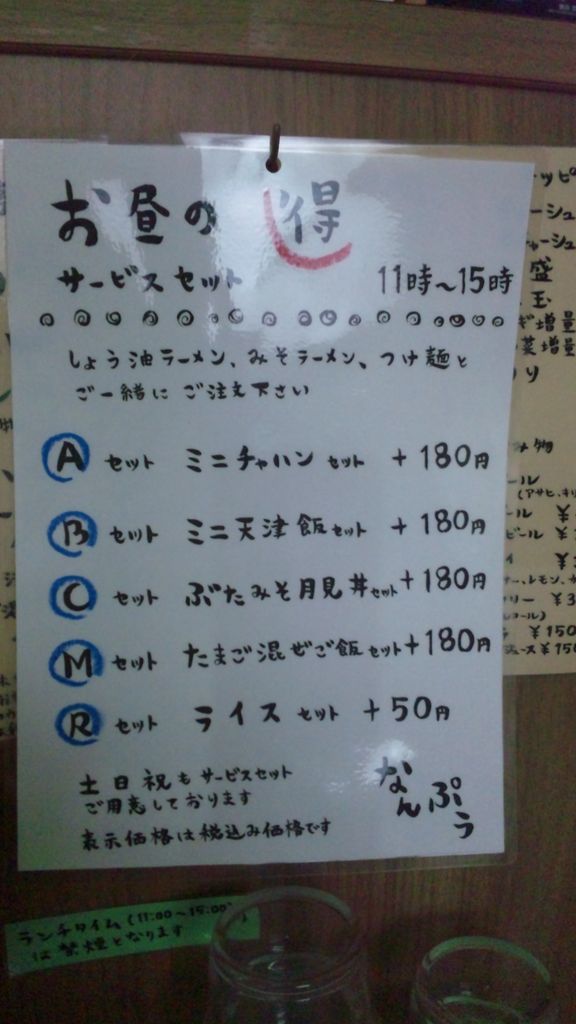 お昼の得
サービスセット 11時～15時
しょう油ラーメン、みそラーメン、つけ麺と
ご一緒に ご注文下さい
A セット ミニチャハン セット +180円
B セット ミニ天津飯セット +180円
C セット ぶたみそ月見丼セット+180円
M セット たまご混ぜご飯セット+180円
R セット ライスセット +50円
土日祝もサービスセット
ご用意しております
表示価格は税込み価格です
なんぷう
ランチタイム(11:00～15:00)
は禁煙となります
盛
玉
増量
増量
(アサヒ、キリ
ール ¥
ビール ¥
¥150
ュース¥150